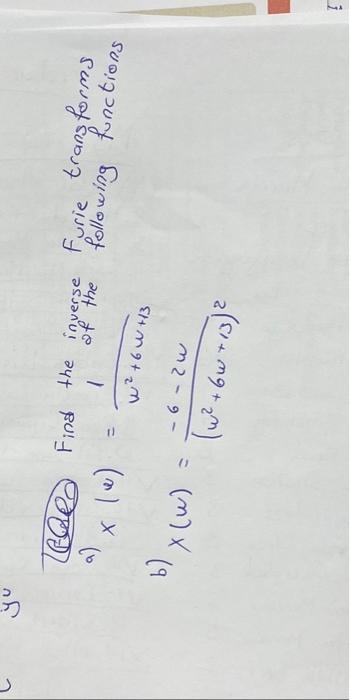 Find the inverse Furie transforms
of the following functions
a) x(w) = 1 / w² + 6w + 13
b) X(w) = -6 - 2w / (w² + 6w + 13)²